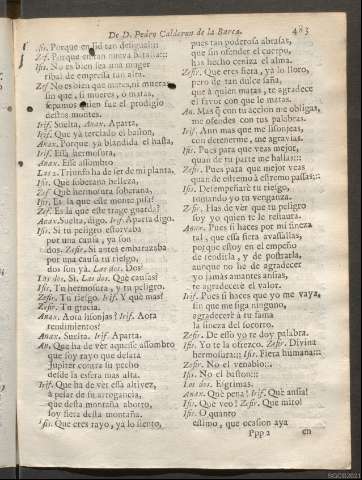 De D. Pedro Calderon de la Barca. 483
Isi. Porque en lid tan desigual:::
Zef. Porque en tan nueva batalla:::
Isi. No es bien sea una muger
rival de empressa tan alta.
Zef No es bien que mates, ni mueras
sin que, si mueres, ó matas,
sepamos quien fue el prodigio
destos montes.
Irif. Suelta, Anax. Aparta,
Irif. Que ya terciado el baston,
Anax. Porque ya blandida el hasta,
Irif. Essa hermosura,
Anax. Esse assombro
Las 2. Triunfo ha de ser de mi planta.
Isi. Què soberana belleza,
Zef Què hermosura soberana,
Isi. Es la que este monte pisa?
Zef. Es la que este trage guarda?
Anax. Suelta, digo. Irif. Aparta digo.
Isi. Si tu peligro estorvaba
por una causa, ya son
dos. Zefir. Si antes embarazaba
por una causa tu riesgo,
dos son yá. Las dos. Dos?
Los dos. Si. Las dos. Què causas?
Isi. Tu hermosura, y tu peligro.
Zefir. Tu riesgo. Irif. Y què mas?
Zefir. Tu gracia.
Anax. Aora lisonjas? Irif. Aora
rendimientos?
Anax. Suelta. Irif. Aparta.
An. Que ha de ver aquesse assombro
que soy rayo que desata
Jupiter contra su pecho
desde la esfera mas alta.
Irif. Que ha de ver essa altivez,
à pesar de su arrogancia,
que desta montaña aborto,
soy fiera desta montaña.
Isi. Que eres rayo, ya lo siento,
pues tan poderosa abrasas,
que sin ofender el cuerpo,
has hecho ceniza el alma.
Zefir. Que eres fiera, ya lo lloro,
pero de tan dulce saña,
que à quien matas, te agradece
el favor con que le matas.
An. Mas q̃ con tu accion me obligas,
me ofendes con tus palabras.
Irif. Aun mas que me lisonjeas,
con detenerme, me agravias.
Isi. Pues para que veas mejor,
quan de tu parte me hallas:::
Zefir. Pues para que mejor veas
quan de estremo à estremo passas:::
Isi. Desempeñarè tu riesgo,
tomando yo tu venganza.
Zefir. Has de ver que tu peligro
soy yo quien te le restaura.
Anax. Pues si haces por mi fineza
tal, que essa fiera avassallas,
porque estoy en el empeño
de rendirla, y de postrarla,
aunque no he de agradecer
yo jamàs amantes ansias,
te agradecerè el valor.
Irif. Pues si haces que yo me vaya,
sin que me siga ninguno,
agradecerè à tu fama
la fineza del socorro.
Zefir. De esso yo te doy palabra.
Isi. Yo te la ofrezco. Zefir. Divina
hermosura::: Isi. Fiera humana:::
Zefir. No el venablo::
Isi. No el baston:::
Los dos. Esgrimas.
Anax. Què pena! Irif. Què ansia!
Isi. Què veo! Zefir. Què miro!
Isi. O quanto
estimo, que ocasion aya
Ppp 2 en